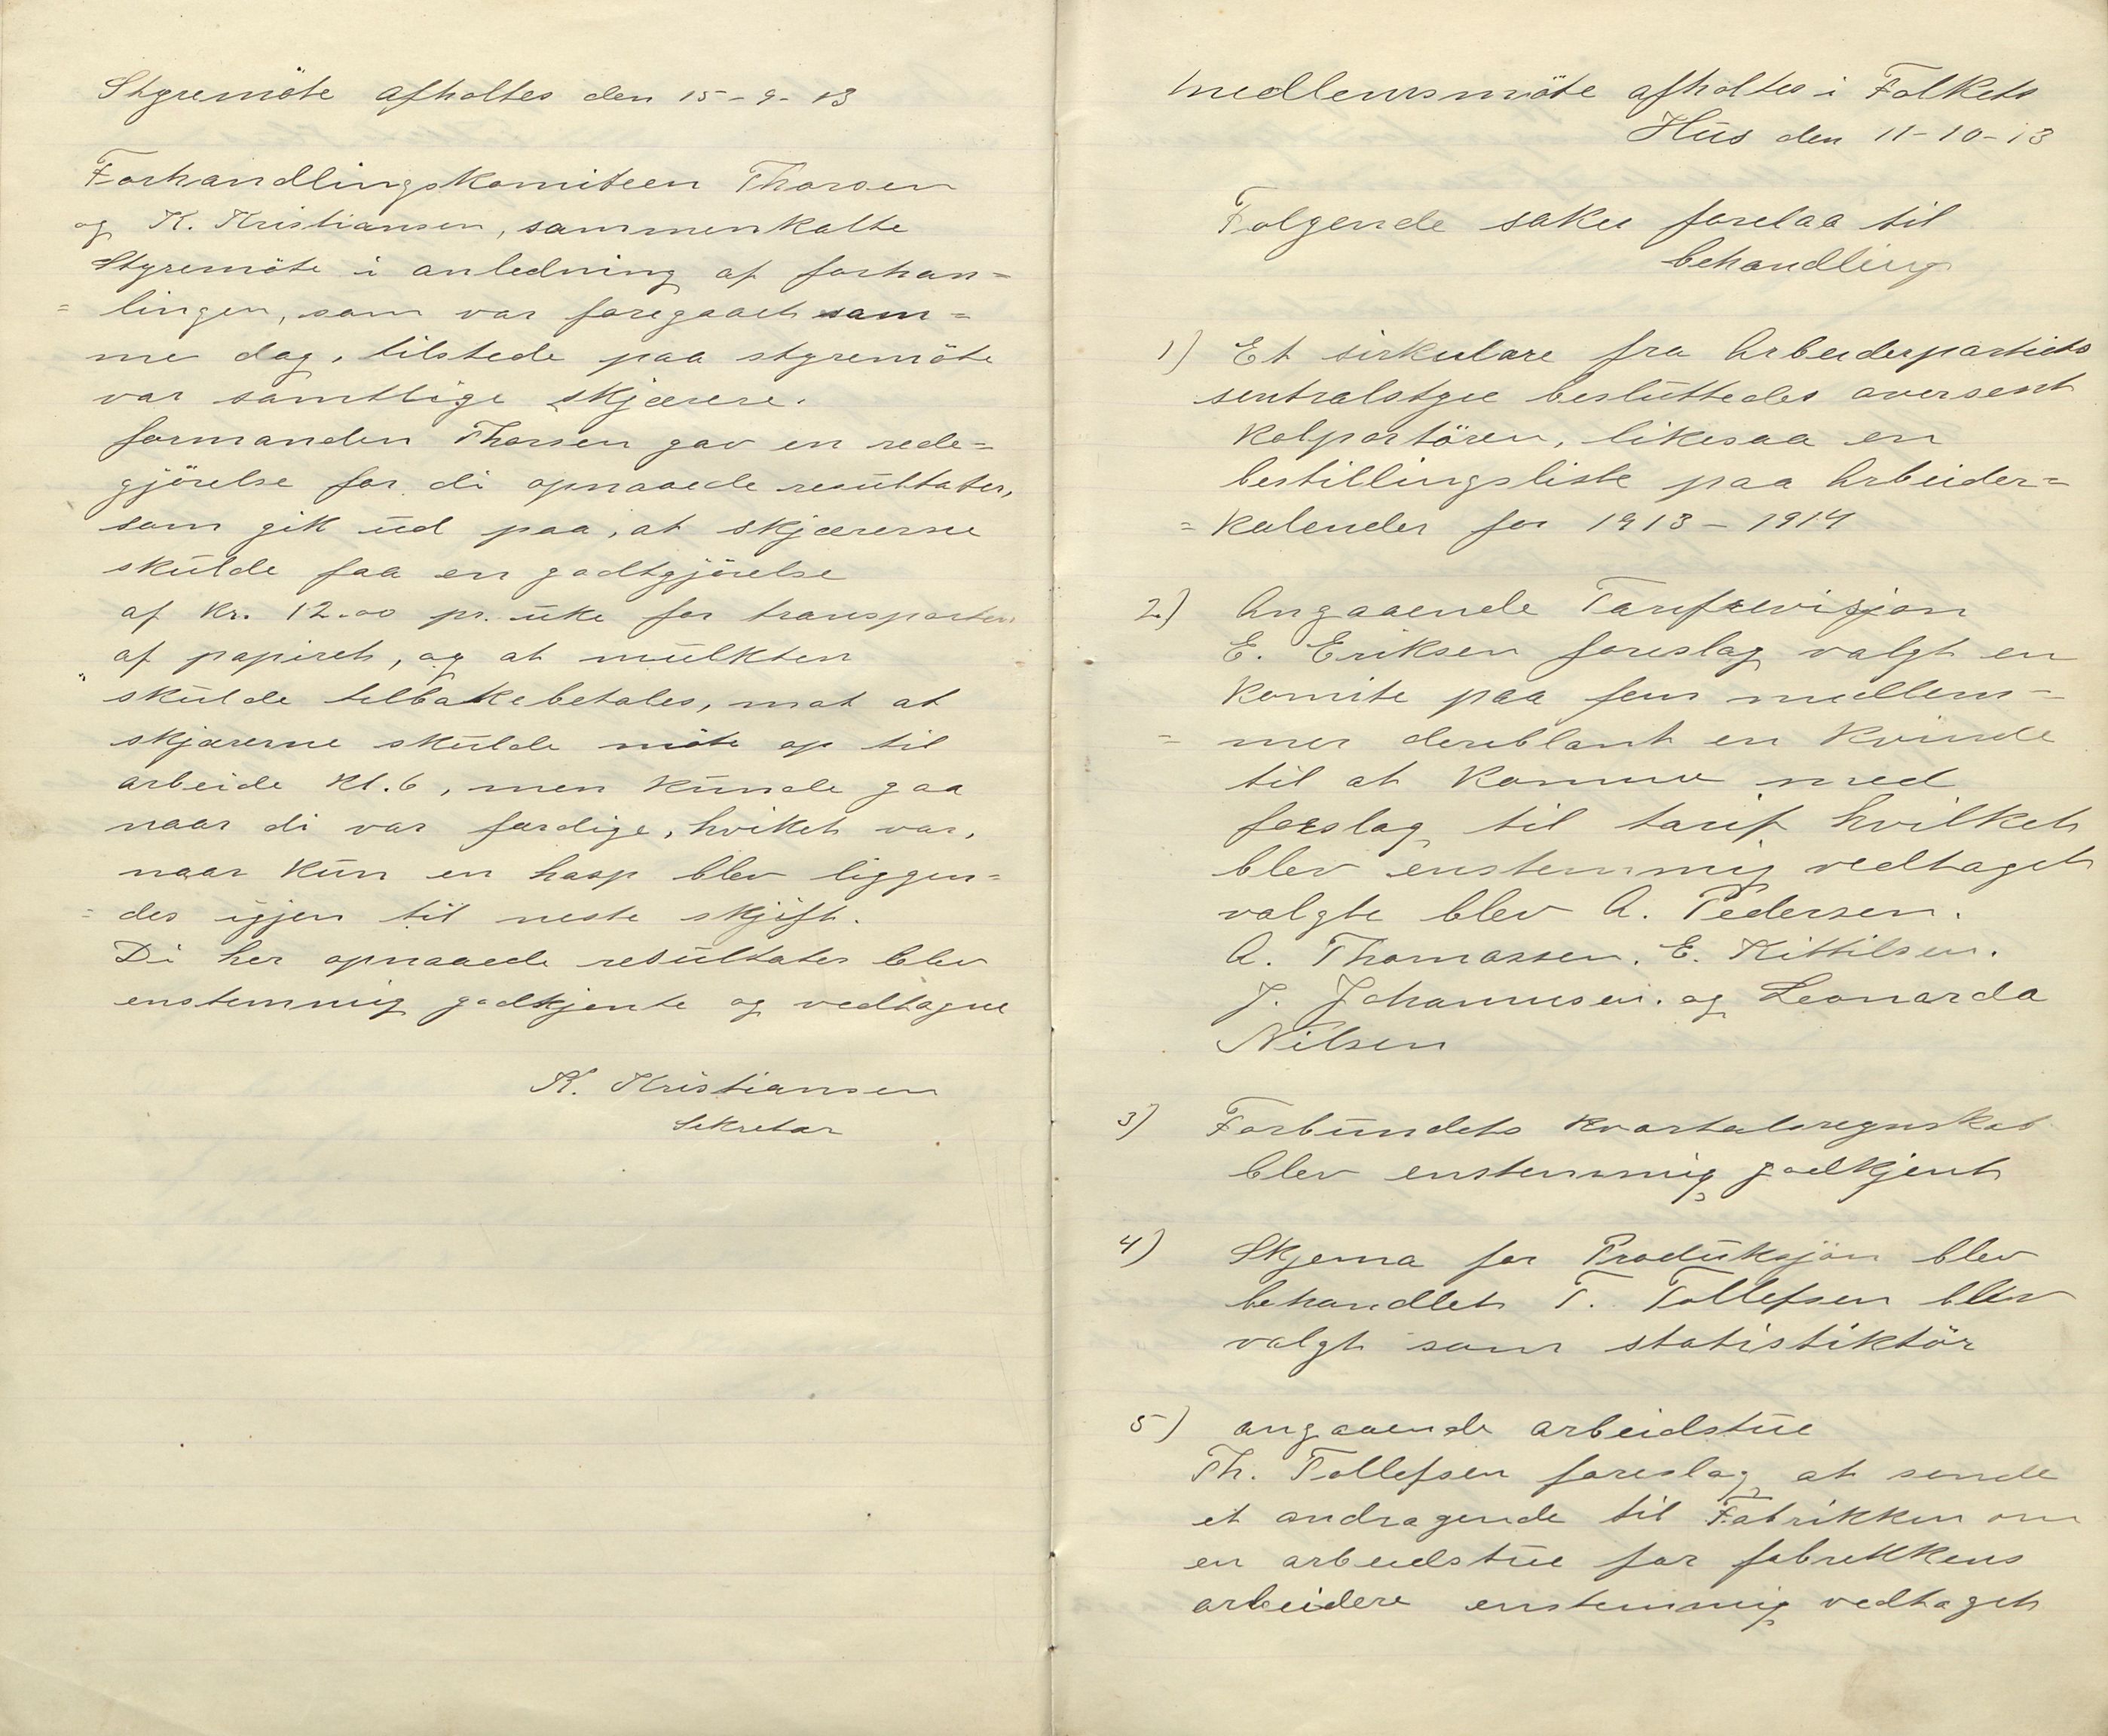 Styremöte afholtes den 15-9-13
Forhandlingskomiteen Thorsen
og K. Kristiansen, sammenkalte
Styremöte i anledning af forhan=
= lingen, som var foregaaet sam=
me dag, tilstede paa styremöte
var samtlige skjærere.
formanden Thorsen gav en rede=
gjörelse for di opnaaede resultater,
som gik ud paa, at skjærerne
skulde faa en godtgjörelse
af kr. 12.00 pr. uke for transporten
af papiret, og at mulkten
skulde tilbakebetales, mot at
skjærerne skulde möte op til
arbeide kl. 6, men kunde gaa
naar di var færdige, hviket var,
naar kun en hasp blev liggen=
= des igjen til neste skjift.
Di her opnaaede resultater blev
enstemmig godkjente og vedtagne
K. Kristiansen
Sekretær
Medlemsmöte afholtes i Folkets
Hus den 11-10-13
Følgende saker forelaa til
behandling
1) Et sirkulære fra Arbeiderpartiets
sentralstyre besluttedes oversent
Kolportören, likesaa en
bestillingsliste paa Arbeider=
= kalender for 1913-1914
2) Angaaende Tarifrevisjon
E. Eriksen foreslog valgt en
komite paa fem medlem=
= mer deriblant en kvinde
til at komme med
forslag til tarif hvilket
blev enstemmig vedtaget
valgte blev A. Pedersen.
A. Thomassen. E. Kittilsen.
J. Johannesen. og Leonarda
Nilsen
3) Forbundets kvartalsregnskab
blev enstemmig godkjent
4) Skjema for Produksjon blev
behandlet T. Tollefsen blev
valgt som statistiktör
5) angaaende arbeidstue
Th. Tollefsen foreslog at sende
et andragende til Fabrikken om
en arbeidstue for fabrikkens
arbeidere enstemmig vedtaget